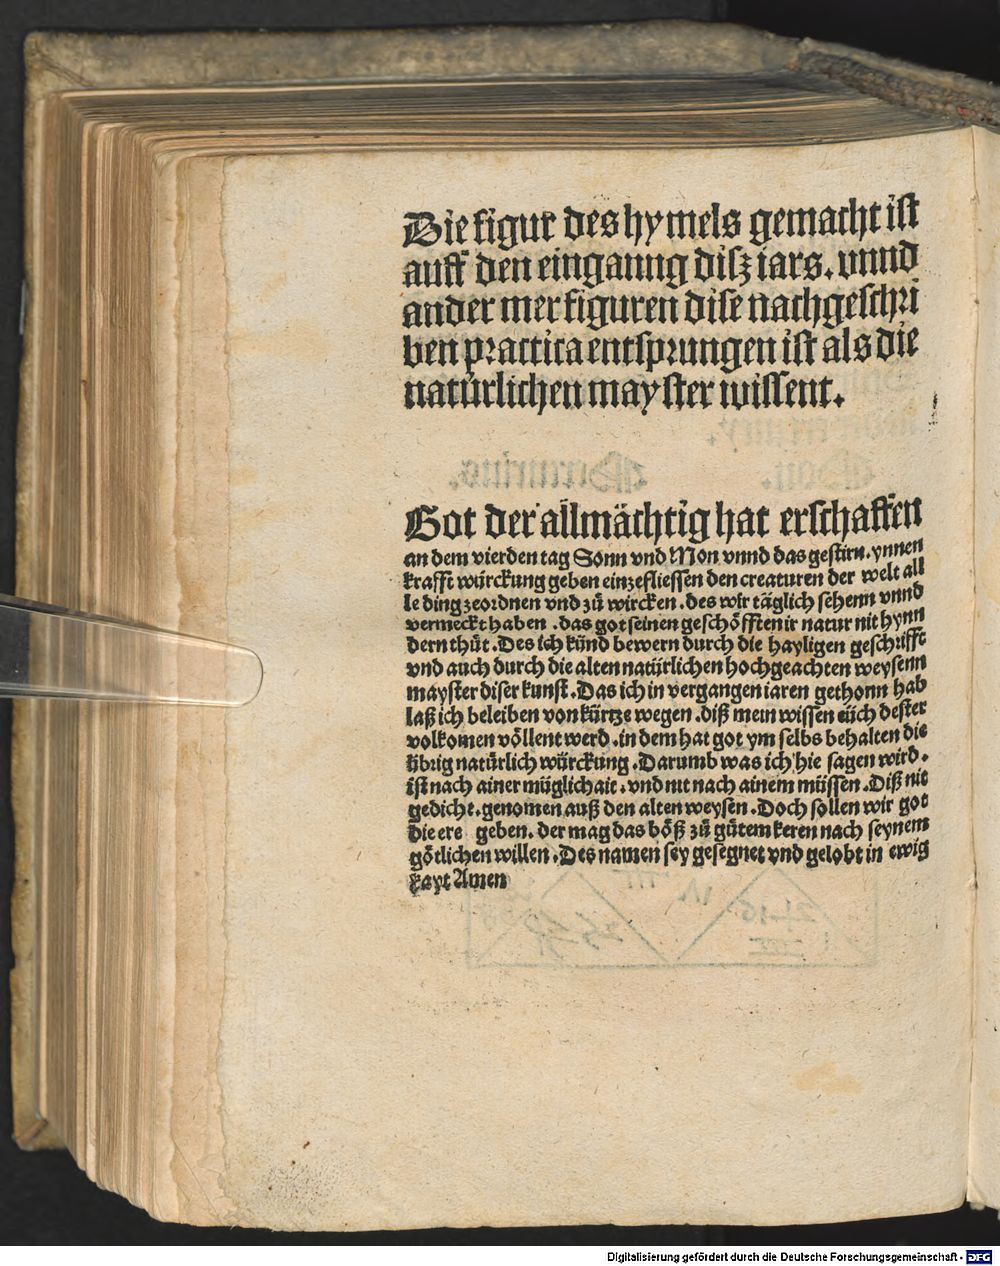 Die figur des hymels gemacht ist
auff den einganng disz iars. vnnd
ander mer figuren dise nachgeschri
ben practica entsprungen ist als die
natürlichen mayster wissent.
Got der allmächtig hat erschaffen
an dem vierden tag Sonn vnd Mon vnnd das gestirn. ynnen
krafft würckung geben einzefliessen den creaturen der welt all
le ding zeordnen vnd zů wircken. des wir täglich sehenn vnnd
vermeckt haben. das got seinen geschöfften ir natur nit hynn
dern thůt. Des ich künd bewern durch die hayligen geschrifft
vnd auch durch die alten natürlichen hochgeachten weysenn
mayster diser kunst. Das ich in vergangen iaren gethonn hab
laß ich beleiben von kürtze wegen. diß mein wissen eüch dester
volkomen völlent werd. in dem hat got ym selbs behalten die
übrig natürlich würckung. Darumb was ich hie sagen wird.
ist nach ainer müglichait. vnd nit nach ainem müssen. Diß nit
gedicht. genomen auß den alten weysen. Doch sollen wir got
die ere geben. der mag das böß zů gůtem keren nach seynem
götlichen willen. Des namen sey gesegnet vnd gelobt in ewig
kayt Amen
Digitalisierung gefördert durch die Deutsche Forschungsgemeinschaft - DFG